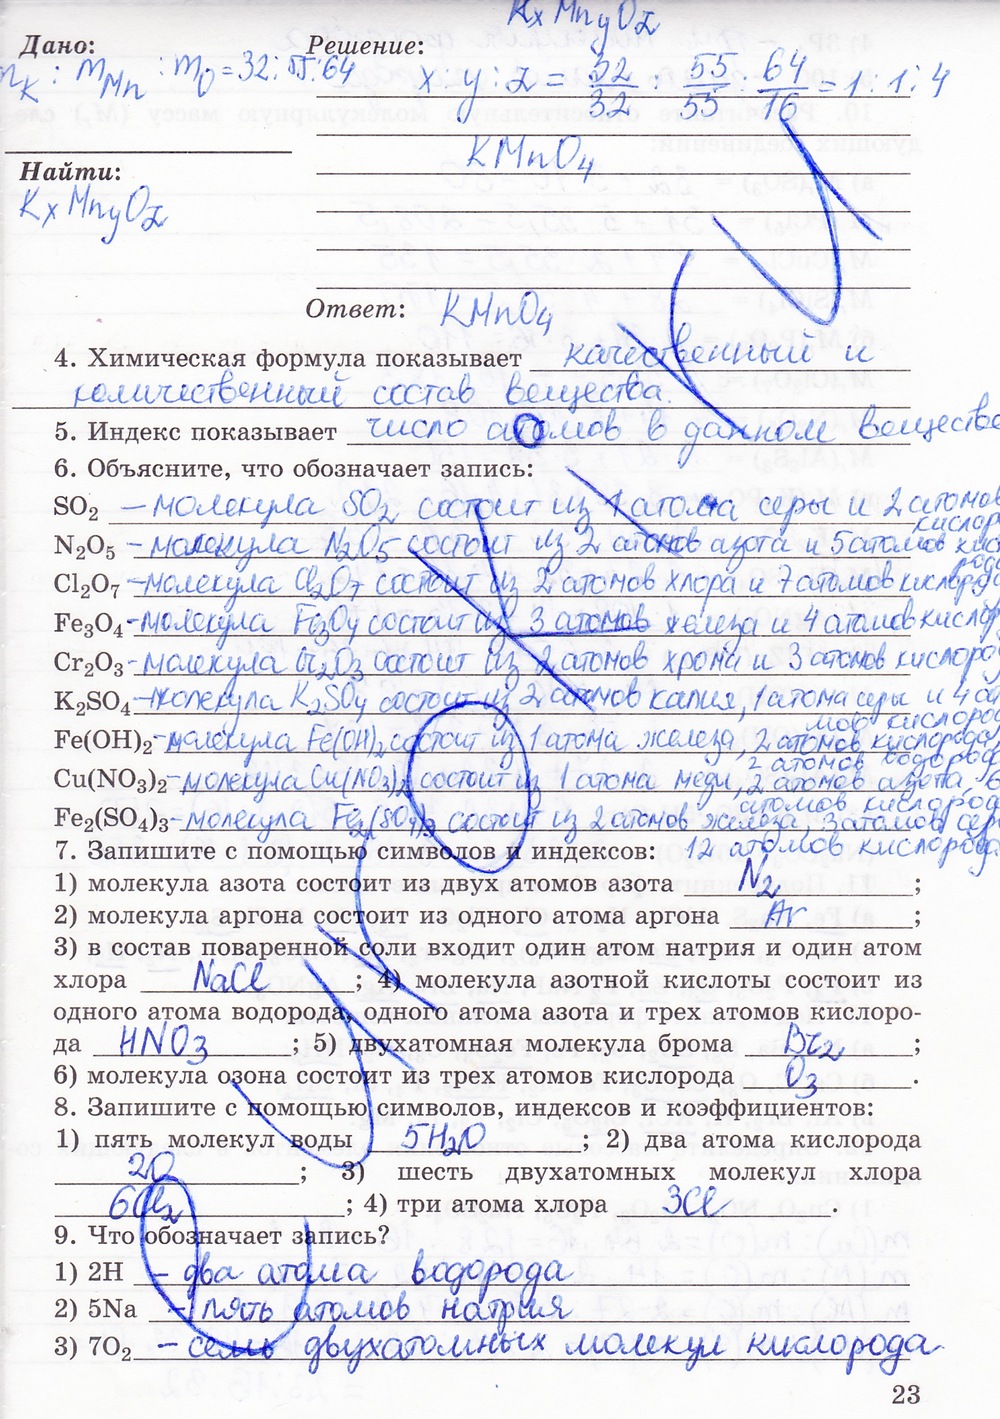 KxMnyOz
Дано:
Решение:
mK : mMn : mO = 32:55:64
x : y : z = 32/32 : 55/55 : 64/16 = 1:1:4
KMnO4
Найти:
KxMnyOz
Ответ: KMnO4
4. Химическая формула показывает качественный и
количественный состав вещества.
5. Индекс показывает число атомов в данном веществе
6. Объясните, что обозначает запись:
SO2 – молекула SO2 состоит из 1 атома серы и 2 атомов
кислор
N2O5 – молекула N2O5 состоит из 2 атомов азота и 5 атомов кис
рода
Cl2O7 – молекула Cl2O7 состоит из 2 атомов хлора и 7 атомов кислоро
Fe3O4 – молекула Fe3O4 состоит из 3 атомов железа и 4 атомов кислор
Cr2O3 – молекула Cr2O3 состоит из 2 атомов хрома и 3 атомов кислоро
K2SO4 – молекула K2SO4 состоит из 2 атомов калия, 1 атома серы и 4 а
мов кислоро
Fe(OH)2 – молекула Fe(OH)2 состоит из 1 атома железа, 2 атомов кислорода
2 атомов водоро
Cu(NO3)2 – молекула Cu(NO3)2 состоит из 1 атома меди, 2 атомов азота, 6
атомов кислоро
Fe2(SO4)3 – молекула Fe2(SO4)3 состоит из 2 атомов железа, 3 атомов сер
12 атомов кислорода
7. Запишите с помощью символов и индексов:
1) молекула азота состоит из двух атомов азота N2 ;
2) молекула аргона состоит из одного атома аргона Ar ;
3) в состав поваренной соли входит один атом натрия и один атом
хлора NaCl ; 4) молекула азотной кислоты состоит из
одного атома водорода, одного атома азота и трех атомов кислоро-
да HNO3 ; 5) двухатомная молекула брома Br2 ;
6) молекула озона состоит из трех атомов кислорода O3 .
8. Запишите с помощью символов, индексов и коэффициентов:
1) пять молекул воды 5H2O ; 2) два атома кислорода
2O ; 3) шесть двухатомных молекул хлора
6Cl2 ; 4) три атома хлора 3Cl .
9. Что обозначает запись?
1) 2H – два атома водорода
2) 5Na – пять атомов натрия
3) 7O2 – семь двухатомных молекул кислорода
23